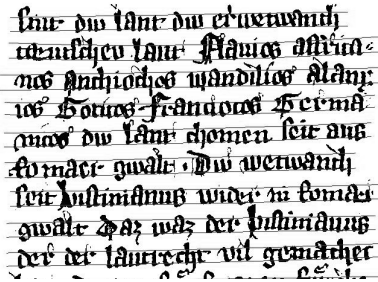 sint diw lant diw er wetwanch
tevtscheu lant Flavios affrica-
nos Anthiochos wandilios Alani
ios Gottos Francocos Germa
nicos diw lant chomen seit aus
Romaer gwalt. Diw wetwanch
seit Justinianus wider in Romaer
gwalt Daz waz der Justinianus
der der lantrecht vil gemachet